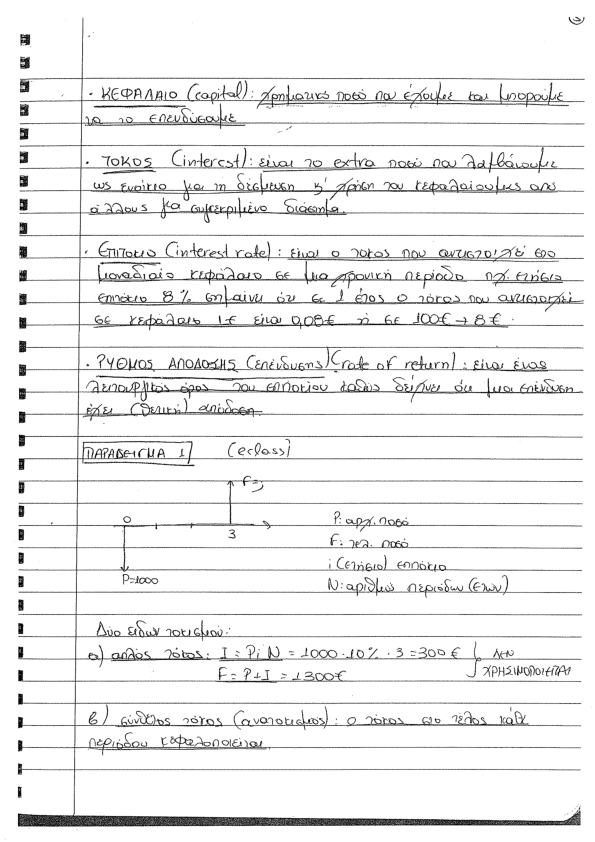 3
· ΚΕΦΑΛΑΙΟ (capital): χρηματικό ποσό που έχουμε και μπορούμε
να το επενδύσουμε
· ΤΟΚΟΣ (interest): είναι το extra ποσό που λαμβάνουμε
ως ενοίκιο για τη δέσμευση ή χρήση του κεφαλαίου μας από
άλλους για συγκεκριμένο διάστημα.
· Επιτόκιο (interest rate): είναι ο τόκος που αντιστοιχεί στο
μοναδιαίο κεφάλαιο σε μια χρονική περίοδο πχ. ετήσιο
επιτόκιο 8% σημαίνει ότι σε 1 έτος ο τόκος που αντιστοιχεί
σε κεφάλαιο 1€ είναι 0,08€ ή σε 100€ → 8€.
· ΡΥΘΜΟΣ ΑΠΟΔΟΣΗΣ (επένδυσης) (rate of return): είναι ένας
λειτουργικός όρος του επιτοκίου καθώς δείχνει ότι μια επένδυση
έχει (θετική) απόδοση.
ΠΑΡΑΔΕΙΓΜΑ 1 (eclass)
F=;
0
3
P=1000
P: αρχ. ποσό
F: τελ. ποσό
i (ετήσιο) επιτόκιο
N: αριθμός περιόδων (ετών)
Δύο ειδών τοκισμού:
α) απλός τόκος: I = P i N = 1000 · 10% · 3 = 300 €
F = P + I = 1300€
ΔΕΝ
ΧΡΗΣΙΜΟΠΟΙΕΙΤΑΙ
β) σύνθετος τόκος (ανατοκισμός): ο τόκος στο τέλος κάθε
περιόδου κεφαλοποιείται.